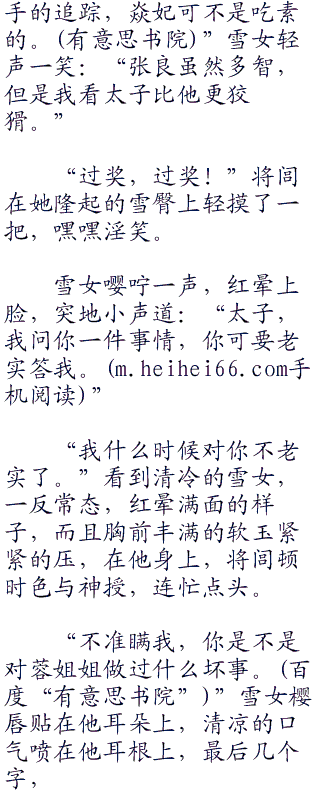 手的追踪，焱妃可不是吃素
的。(有意思书院)”雪女轻
声一笑：“张良虽然多智，
但是我看太子比他更狡
猾。”
“过奖，过奖！”将闾
在她隆起的雪臀上轻摸了一
把，嘿嘿淫笑。
雪女嘤咛一声，红晕上
脸，突地小声道：“太子，
我问你一件事情，你可要老
实答我。(m.heihei66.com手
机阅读)”
“我什么时候对你不老
实了。”看到清冷的雪女，
一反常态，红晕满面的样
子，而且胸前丰满的软玉紧
紧的压，在他身上，将闾顿
时色与神授，连忙点头。
“不准瞒我，你是不是
对蓉姐姐做过什么坏事。(百
度“有意思书院”)”雪女樱
唇贴在他耳朵上，清凉的口
气喷在他耳根上，最后几个
字，